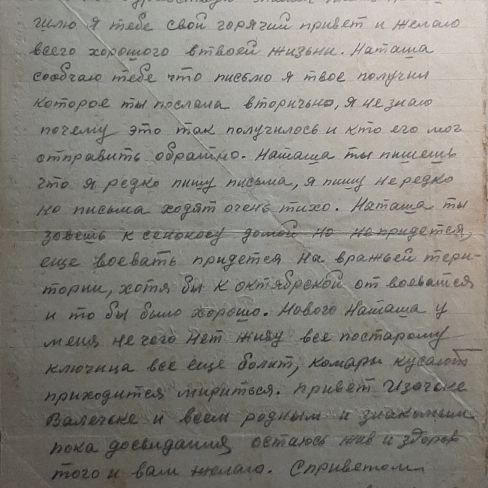 шлю я тебе свой горячий привет и желаю
всего хорошого втвоей жизьни. Наташа
сообчаю тебе что письмо я твое получил
которое ты послала вторично, я незнаю
почему это так получилось и кто его мог
отправить обратно. Наташа ты пишешь
что я редко пишу письма, я пишу нередко
но письма ходят очень тихо. Наташа ты
зовешь к сенокосу домой но не придется,
еще воевать придется на вражьей тери-
тории, хотя бы к октябрьской от воеватся
и то бы было хорошо. Нового Наташа у
меня не чего нет живу все постарому
ключица все еще болит, комары кусают
приходится мириться. Привет
Валечьке и всем родным и знакомым
пока досвидания остаюсь жив и здоров
того и вам желаю. Сприветом